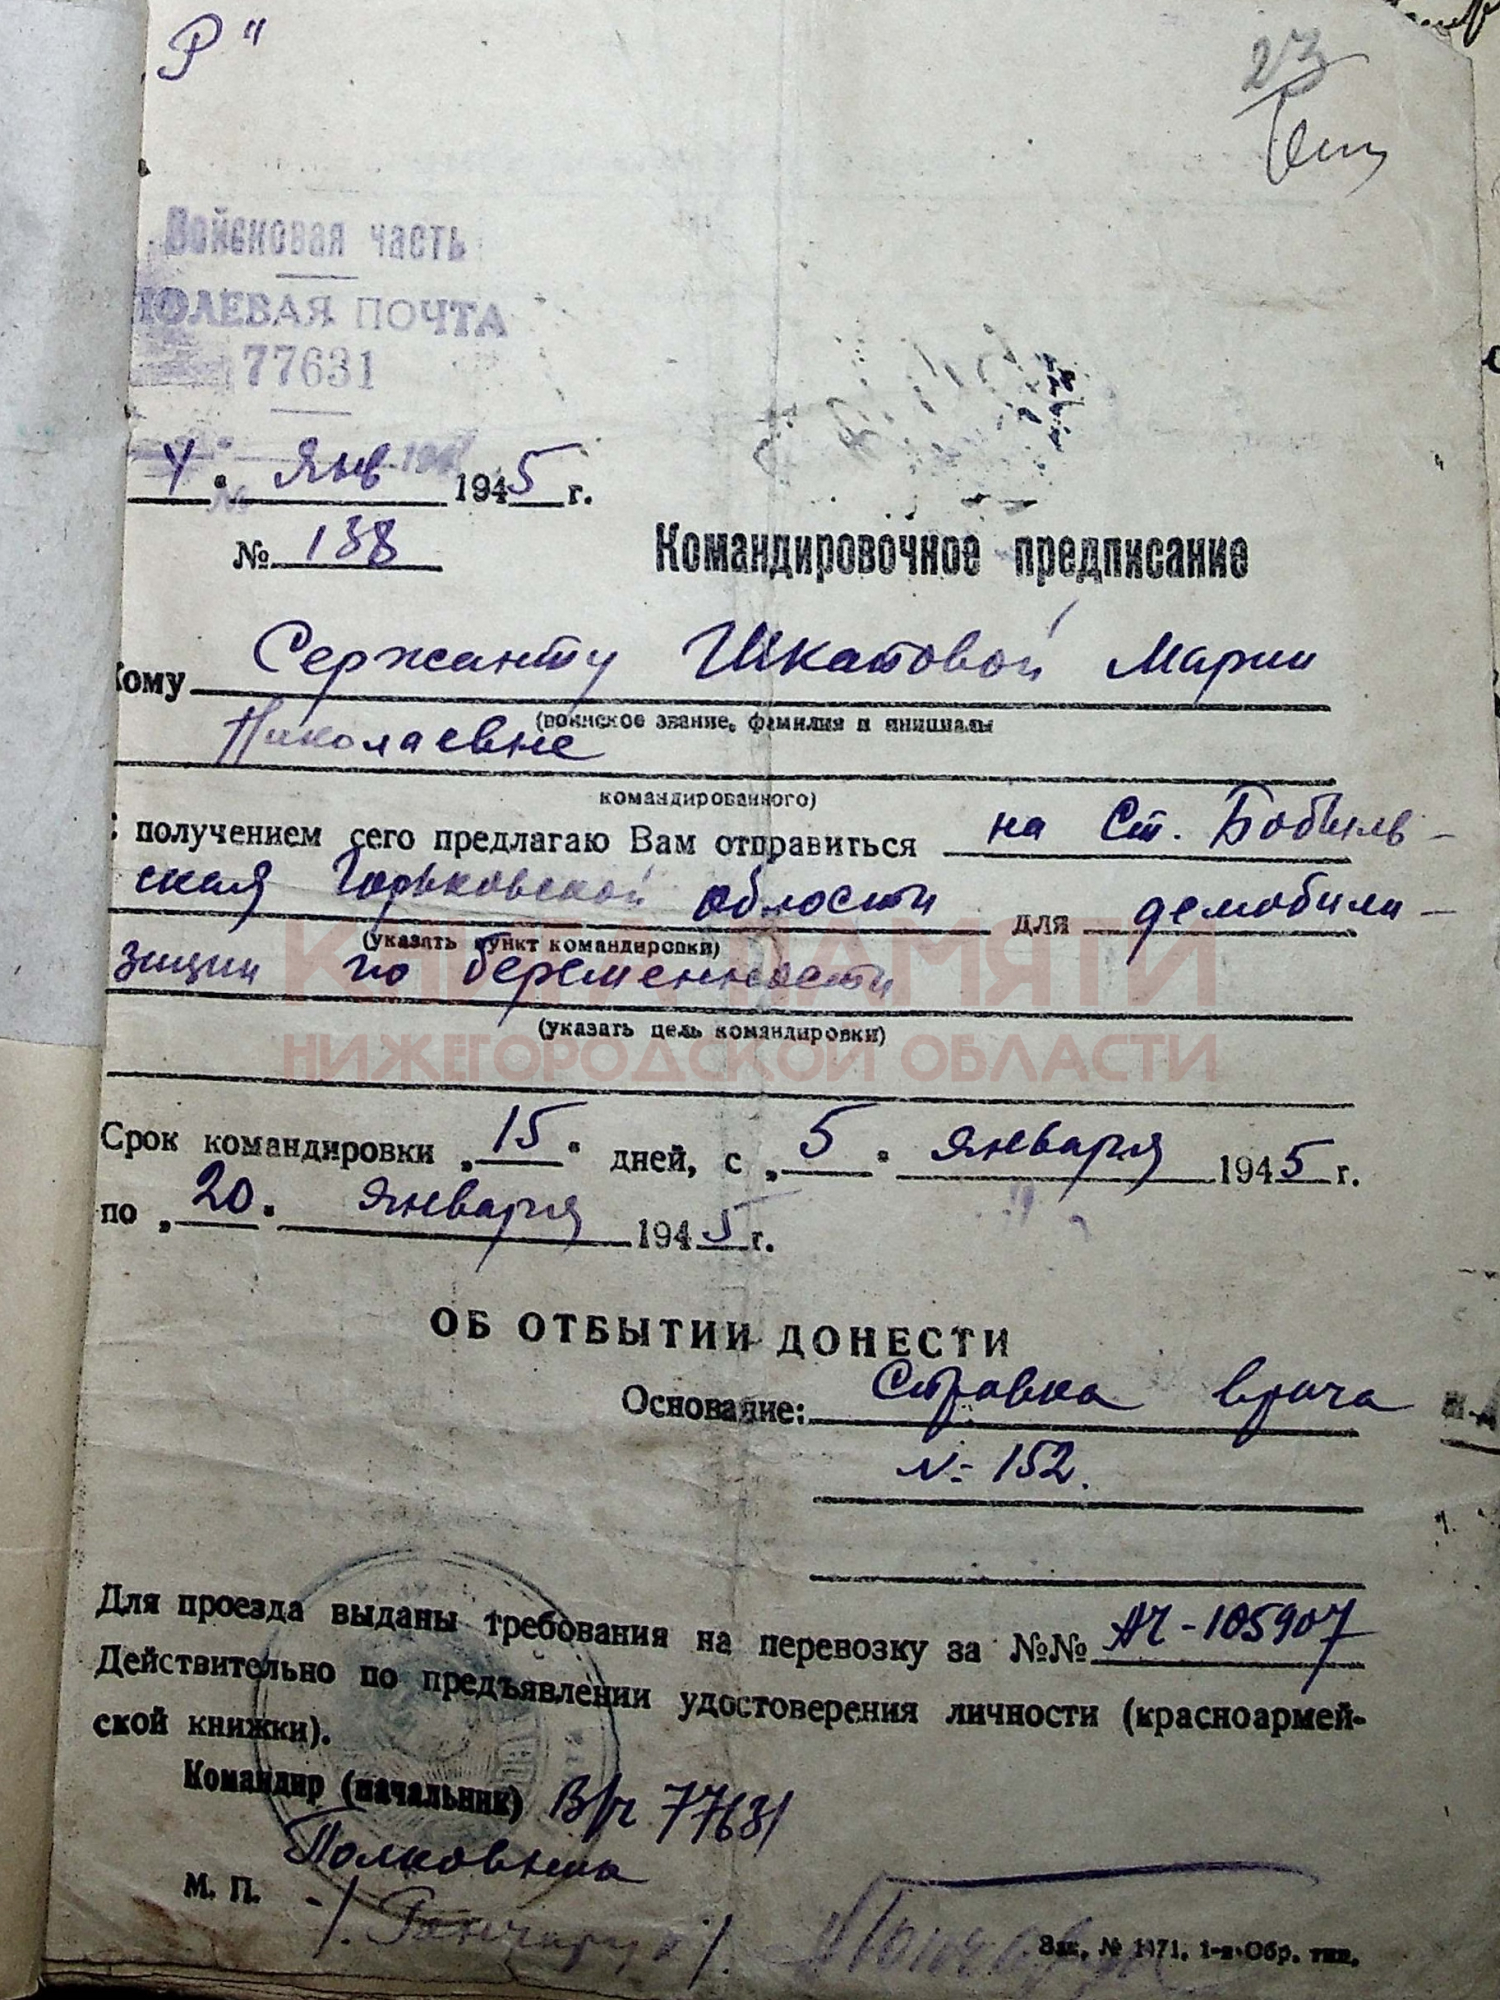 Р"
23
Войсковая часть
ПОЛЕВАЯ ПОЧТА
77631
4 " Янв 1945 г.
№ 138
Командировочное предписание
Кому Сержанту Шкатовой Марии
(воинское звание, фамилия и инициалы
Николаевне
командированного)
С получением сего предлагаю Вам отправиться на Ст. Бобыль-
ская Горьковской области для демобили-
(указать пункт командировки)
КНИГА ПАМЯТИ
зации по беременности
(указать цель командировки)
НИЖЕГОРОДСКОЙ ОБЛАСТИ
Срок командировки „15" дней, с „5" января 1945 г.
по „20" января 1945 г.
ОБ ОТБЫТИИ ДОНЕСТИ
Основание: Справка врача
№ 152.
Для проезда выданы требования на перевозку за №№ АЧ-105907
Действительно по предъявлении удостоверения личности (красноармей-
ской книжки).
Командир (начальник) В/ч 77631
Полковник
М. П. -/Гончарук/.
Зак. № 1471. 1-я Обр. тип.